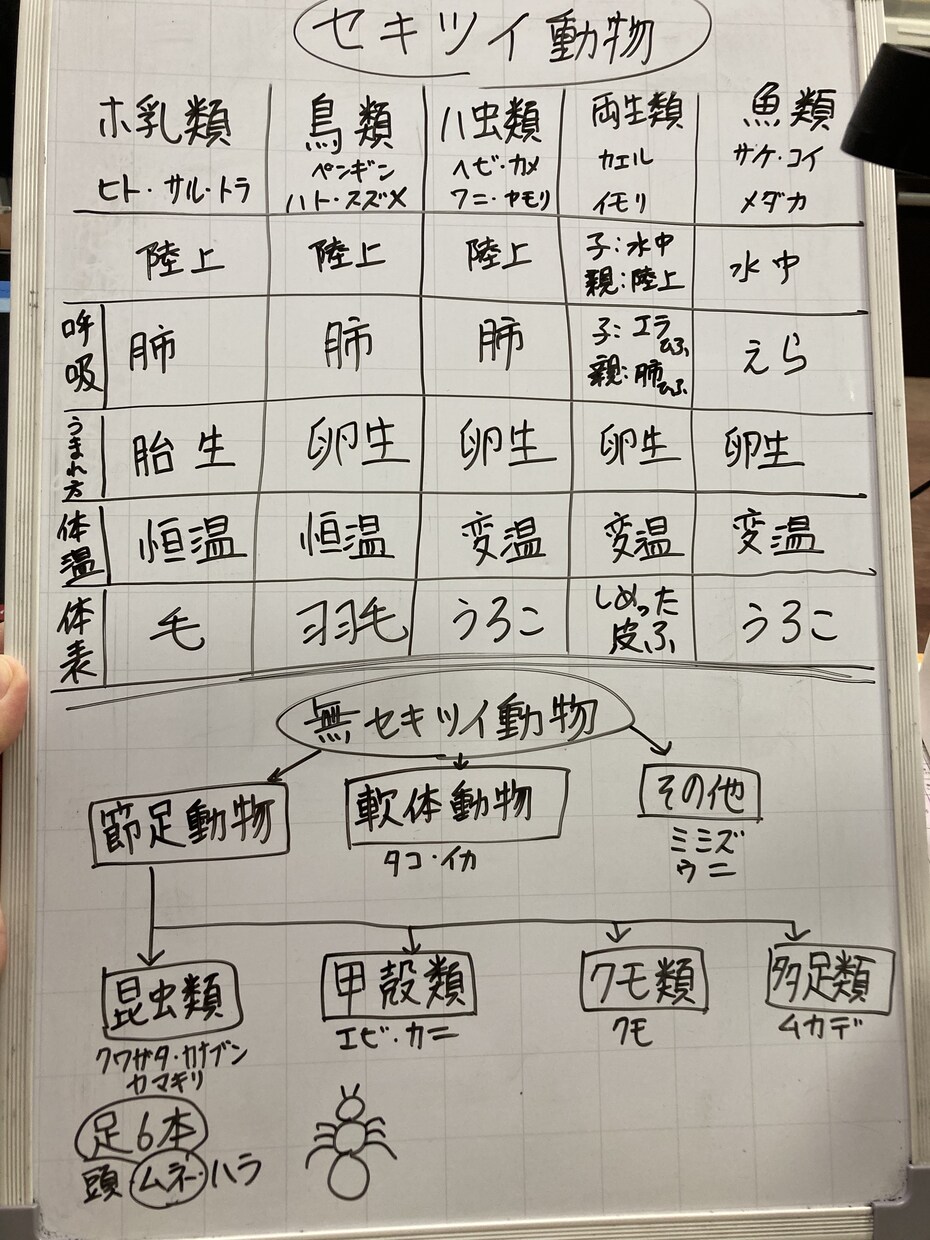 セキツイ動物
ホ乳類 鳥類 ハ虫類 両生類 魚類
ペンギン ヘビ・カメ カエル サケ・コイ
ヒト・サル・トラ ハト・スズメ ワニ・ヤモリ イモリ メダカ
陸上 陸上 陸上 子:水中 水中
親:陸上
呼吸 肺 肺 肺 子:エラ ひふ えら
親:肺 ひふ
うまれ方 胎生 卵生 卵生 卵生 卵生
体温 恒温 恒温 変温 変温 変温
体表 毛 羽毛 うろこ しめった うろこ
皮ふ
無セキツイ動物
節足動物 軟体動物 その他
タコ・イカ ミミズ
ウニ
昆虫類 甲殻類 クモ類 多足類
クワガタ・カナブン エビ・カニ クモ ムカデ
カマキリ
足6本
頭 ムネ・ハラ